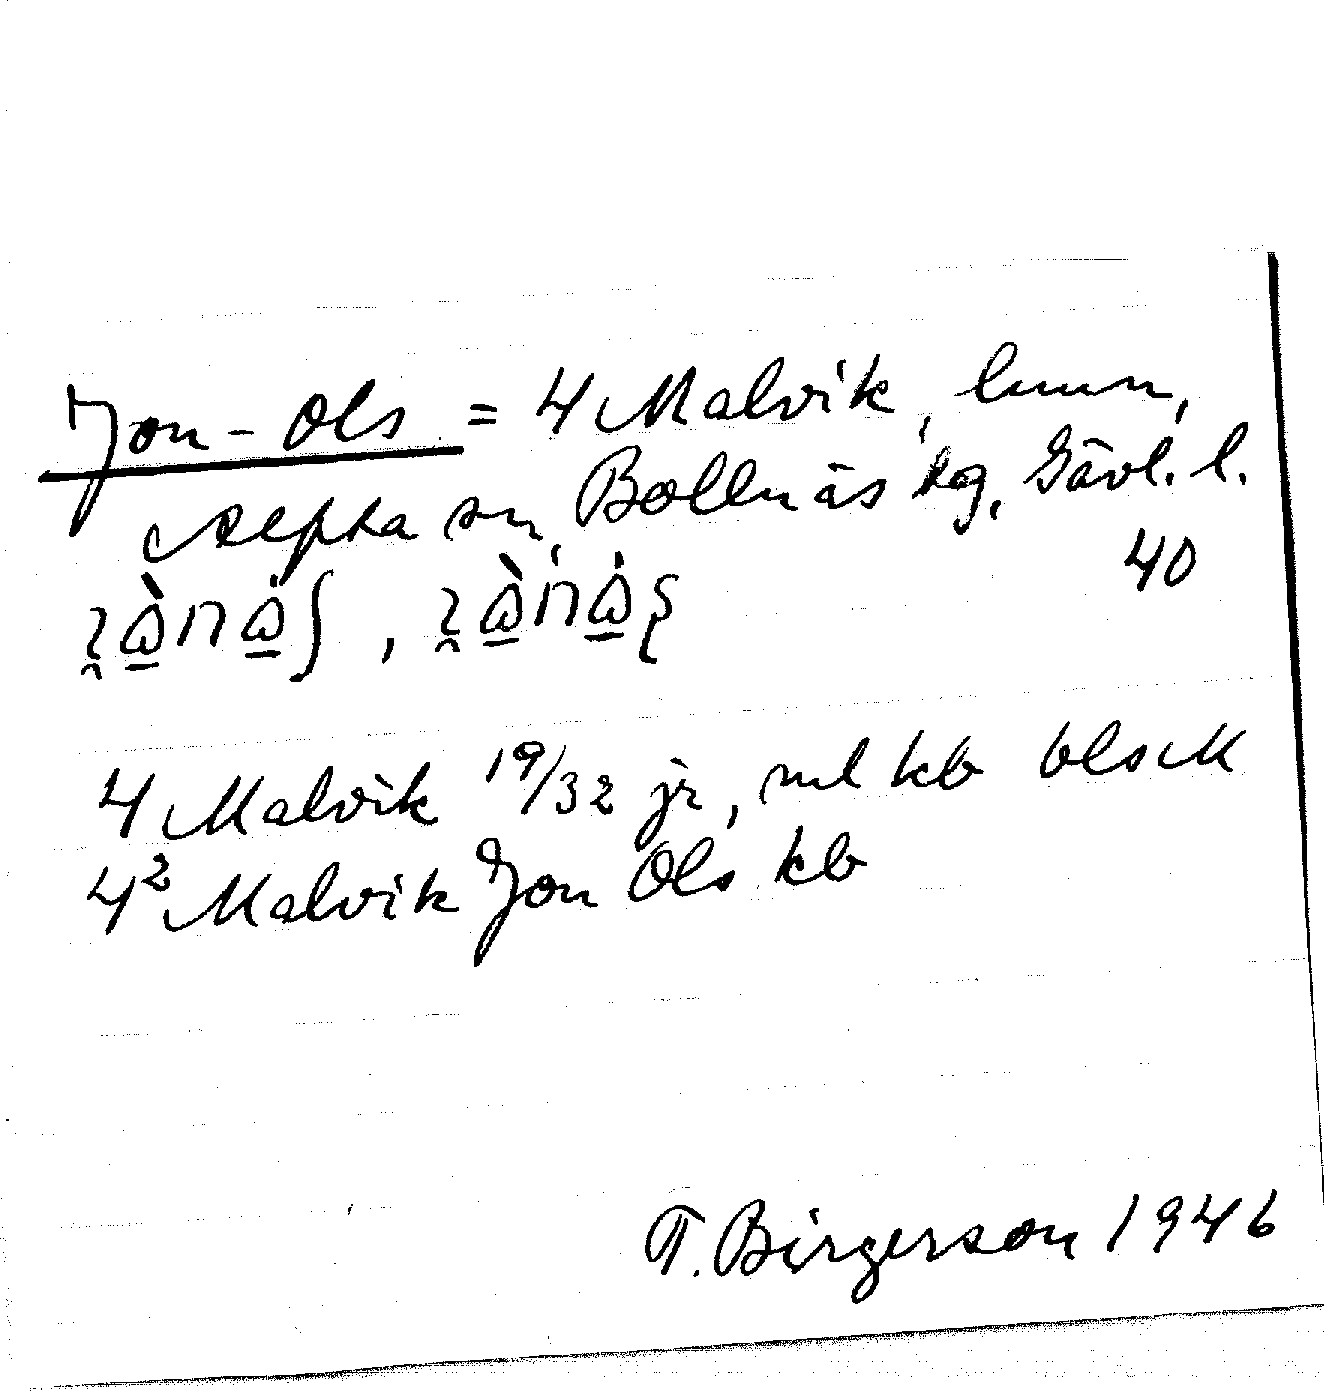 Jon-Ols = 4 Malvik, hmn,
Alfta sn, Bollnäs tg, Gävl. l.
40
4 Malvik 19/32 jr, ml kb
4² Malvik Jon Ols kb
T. Birgerson 1946